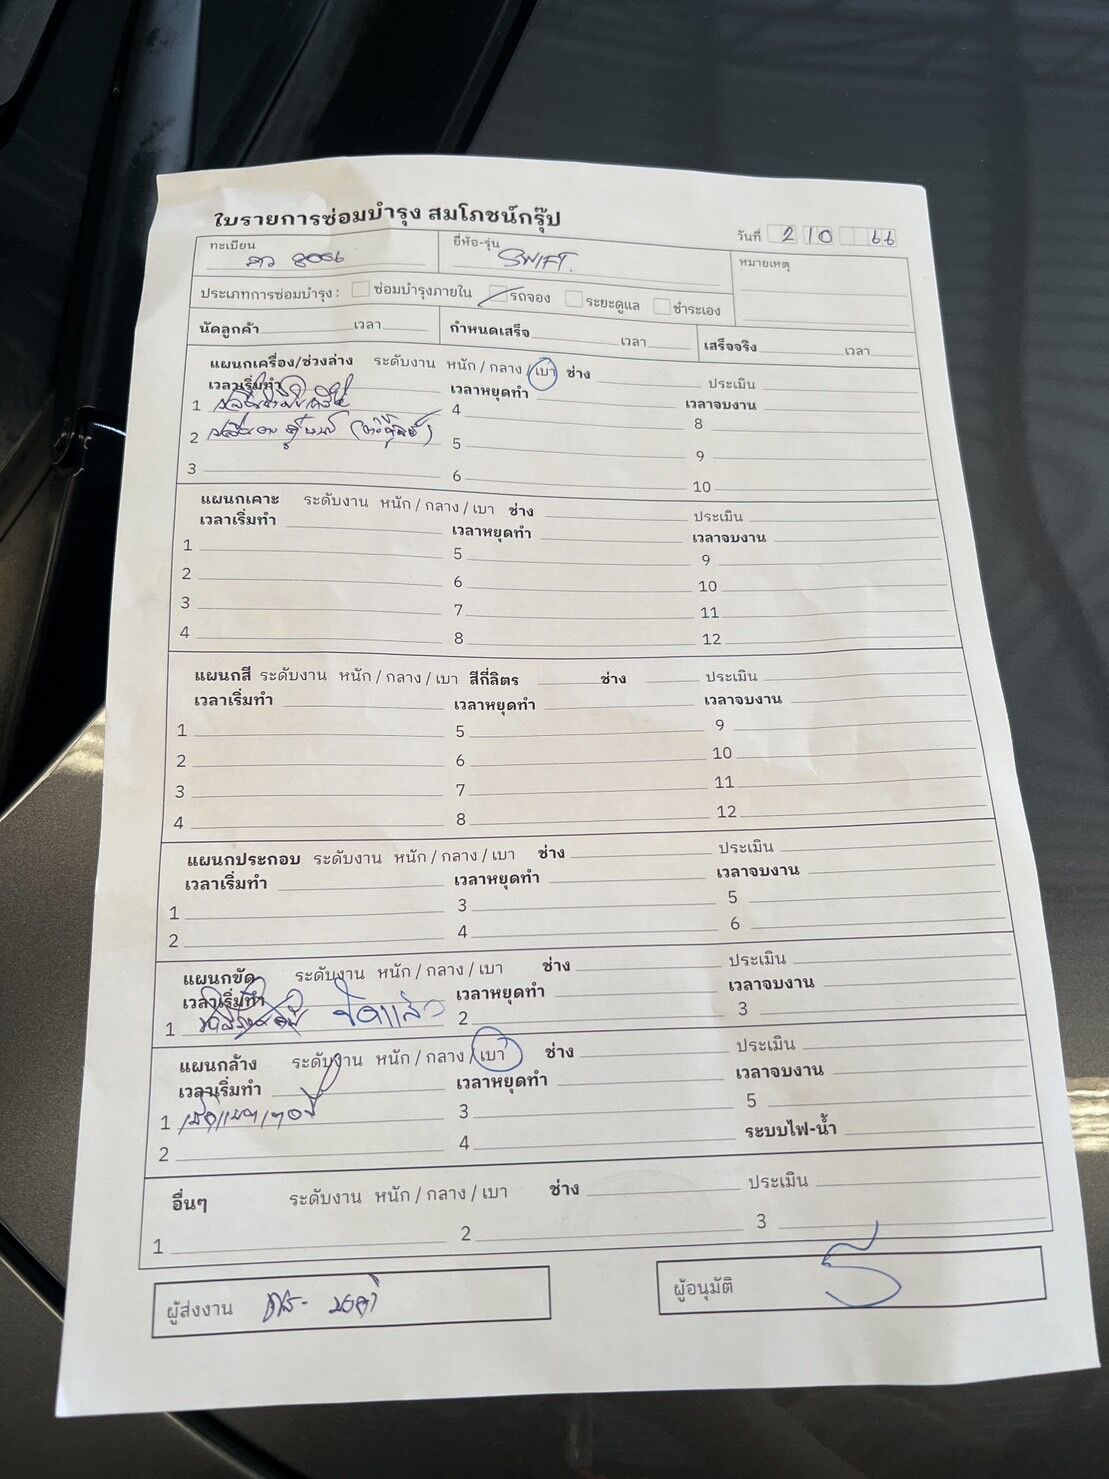 ใบรายการซ่อมบำรุง สมโภชน์กรุ๊ป
วันที่ 2 10 66
ทะเบียน 8056
ยี่ห้อ-รุ่น SWIFT.
หมายเหตุ
ประเภทการซ่อมบำรุง : ซ่อมบำรุงภายใน รถจอง ระยะดูแล ชำระเอง
นัดลูกค้า เวลา กำหนดเสร็จ เวลา เสร็จจริง เวลา
แผนกเครื่อง/ช่วงล่าง ระดับงาน หนัก / กลาง / เบา ช่าง ประเมิน
เวลาเริ่มทำ เวลาหยุดทำ เวลาจบงาน
1 4 8
2 5 9
3 6 10
แผนกเคาะ ระดับงาน หนัก / กลาง / เบา ช่าง ประเมิน
เวลาเริ่มทำ เวลาหยุดทำ เวลาจบงาน
1 5 9
2 6 10
3 7 11
4 8 12
แผนกสี ระดับงาน หนัก / กลาง / เบา สีกี่ลิตร ช่าง ประเมิน
เวลาเริ่มทำ เวลาหยุดทำ เวลาจบงาน
1 5 9
2 6 10
3 7 11
4 8 12
แผนกประกอบ ระดับงาน หนัก / กลาง / เบา ช่าง ประเมิน
เวลาเริ่มทำ เวลาหยุดทำ เวลาจบงาน
1 3 5
2 4 6
แผนกขัด ระดับงาน หนัก / กลาง / เบา ช่าง ประเมิน
เวลาเริ่มทำ เวลาหยุดทำ เวลาจบงาน
1 ขัดแล้ว 2 3
แผนกล้าง ระดับงาน หนัก / กลาง / เบา ช่าง ประเมิน
เวลาเริ่มทำ เวลาหยุดทำ เวลาจบงาน
1 3 5
2 4 ระบบไฟ-น้ำ
อื่นๆ ระดับงาน หนัก / กลาง / เบา ช่าง ประเมิน
1 2 3
ผู้ส่งงาน
ผู้อนุมัติ